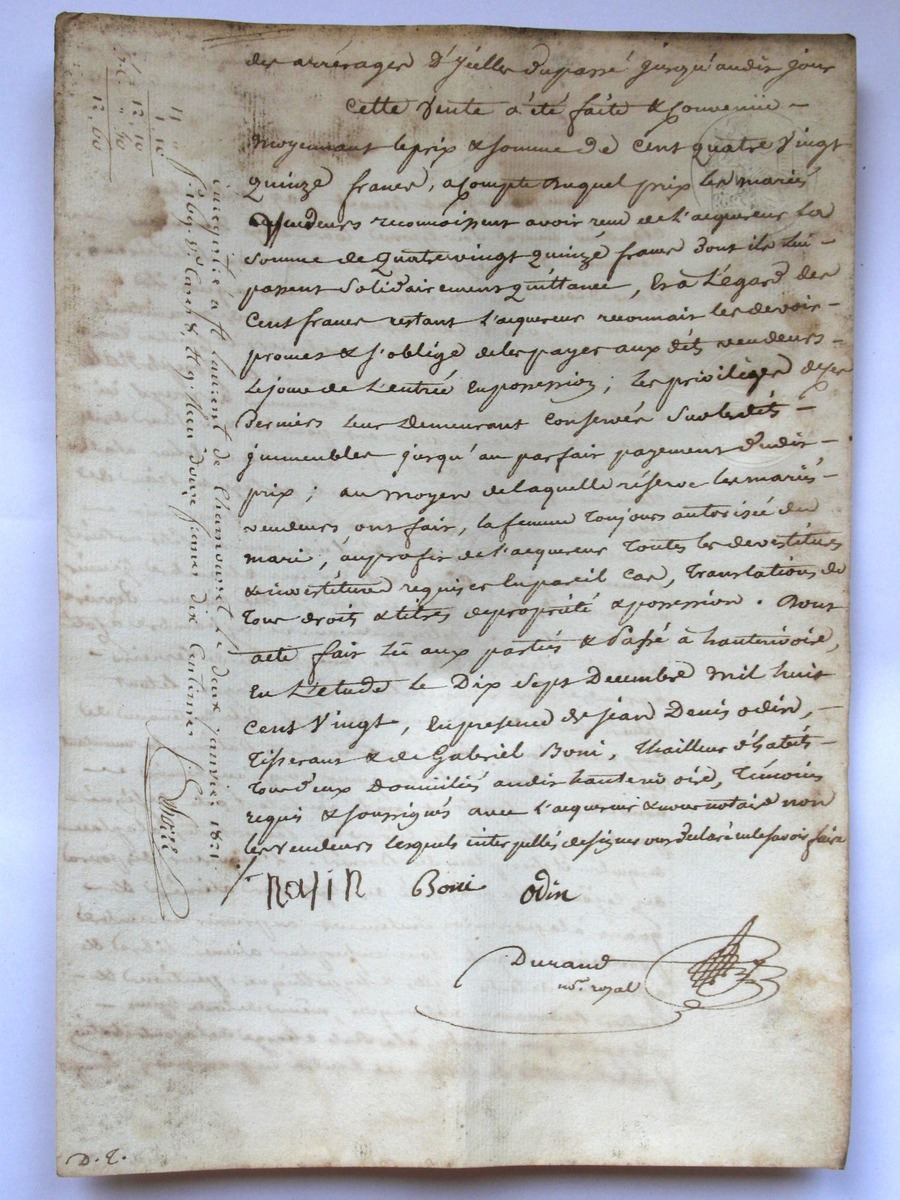 des arrérages D'icelles Dupassé jusqu'audit jour
Cette Vente a été faite & Convenüe -
moyennant le prix & somme de Cent quatre Vingt
Quinze francs, acompte Duquel prix les mariés
Vendeurs reconnaissent avoir reçu de l'acquereur La
Somme de Quatrevingt quinze francs Dont ils Lui -
passent Solidairement Quittance, Et a L'égard des
Cent francs restant L'acquereur reconnait les devoir -
promet & s'oblige de les payer aux dits vendeurs -
Le jour de L'entrée En possession; les privilèges de ces
Derniers Leur Demeurant Conservés Sur les dits -
jmmeubles jusqu'au parfait payement Dudit -
prix; au moyen de laquelle réserve les mariés -
vendeurs ont fait, la femme Toujours autorisée du
mari, au profit de l'acquereur Toutes les devestitures
& investitures requises En pareil Cas, Translations de
Tous droits & titres de propriété & possession. Dont
acte fait Lû aux parties & Passé à hauterivoire,
En L'étude le Dix Sept Decembre mil huit
Cent Vingt, En presence de jean Denis odin, -
Tisserant & de Gabriel Boni, Thailleur d'habits -
Tous Deux Domiciliés audit hauterivoire, Témoins
requis & soussignés avec l'acquereur & nous notaire non
les vendeurs lesquels interpellés de signer ont Déclaré ne le savoir faire
Boni odin
Durand
n.re royal
Enregistré à St Laurent de Chamousset le deux janvier 1821
f. 169 v. Cases 8, et 9. Reçu douze francs dix Centimes
11
1. 10
12. 10
12. 60
D. T.